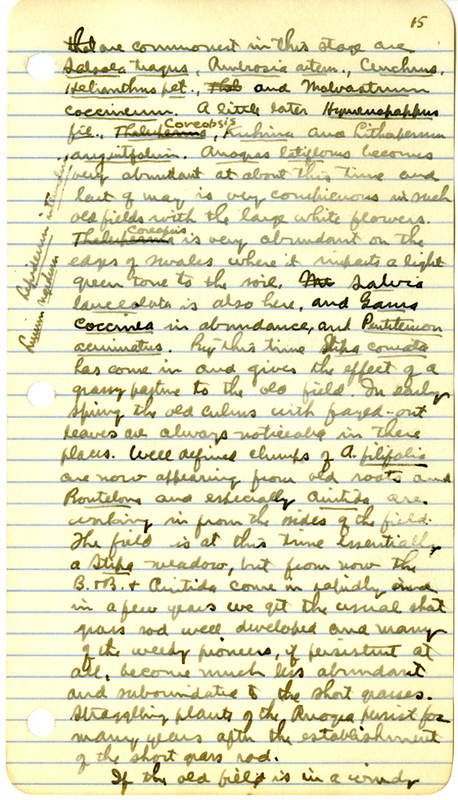 15
that are commonest in this stage are
Salsola tragus, Ambrosia artem., Cenchrus,
Helianthus pet., Thel and Malvastrum
coccineum. A little later Hymenopappus
fil., Thelesperma Coreopsis, Kuhnia and Lithospermum
angustifolium. Anogra latiflora becomes
very abundant at about this time and
last of may is very conspicuous in such
old fields with the large white flowers.
Thelesperma Coreopsis is very abundant on the
edges of swales where it imparts a light
green tone to the soil. Salvia
lanceolata is also here, and Gaura
coccinea in abundance, and Pentstemon
By this time Stipa comata
has come in and gives the effect of a
grassy pasture to the old field. In early
spring the old culms with frayed-out
leaves are always noticeable in these
places. Well defined clumps of A. filifolia
are now appearing from old roots and
Bouteloua and especially Aristida are
working in from the sides of the field.
The field is at this time essentially
a Stipa meadow, but from now the
B. + B. + Aristida come in rapidly and
in a few years we get the usual short
grass sod well developed and many
of the weedy pioneers, if persistent at
all, become much less abundant
and subordinated to the short grasses.
Straggling plants of the Anogra persist for
many years after the establishment
of the short grass sod.
If the old field is in a windy
Lepidium